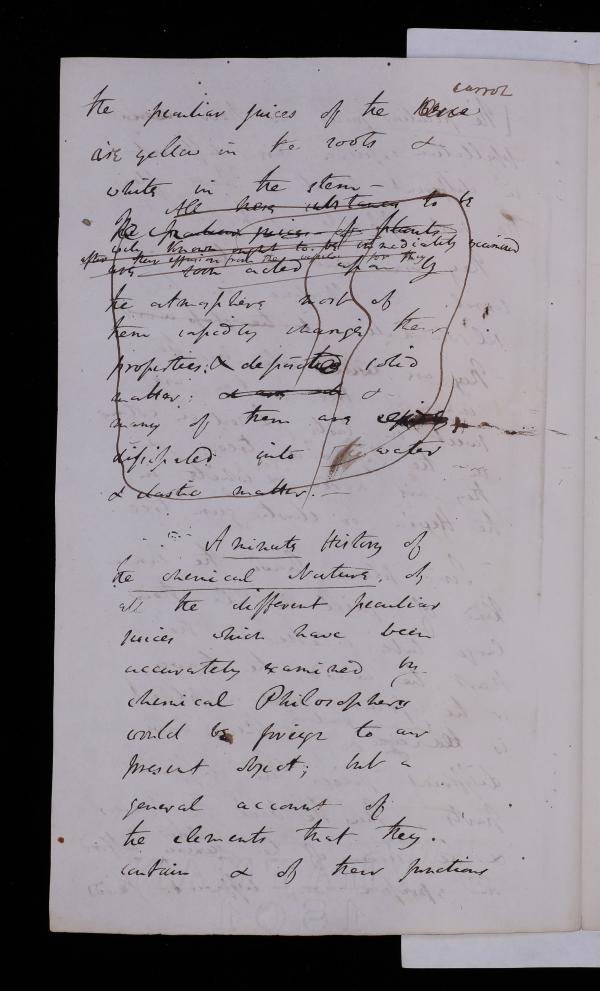 carrot
the peculiar juices of the
are yellow in the roots &
white in the stem –
All these substances to be
The peculiar juices of plants
known ought to be immediately examined
after their effusion from the for they
are soon acted upon by
the atmosphere most of
them rapidly change their
properties; & deposit solid
matter: &
many of them are
dissipated into water
& elastic matter. –
A minute History of
the chemical Nature, of
all the different peculiar
juices which have been
accurately examined by
chemical Philosophers
would be foreign to our
present object; but a
general account of
the elements that they
contain & of their functions